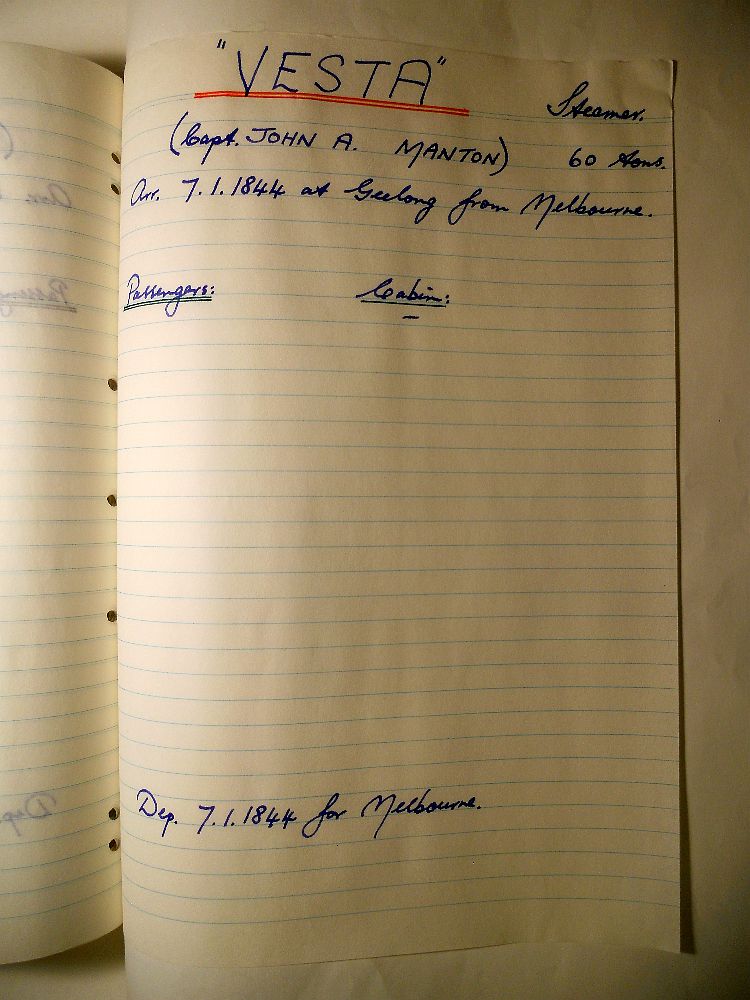 "VESTA"
Steamer.
(Capt. JOHN A. MANTON) 60 tons.
Arr. 7.1.1844 at Geelong from Melbourne.
Passengers: Cabin:
–
Dep. 7.1.1844 for Melbourne.